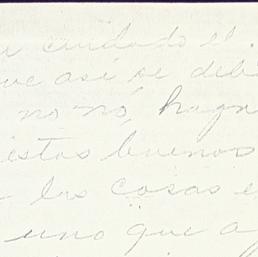 cuidado el
que así se deb
no nó, hagn
estos buenos
las cosas e
uno que a